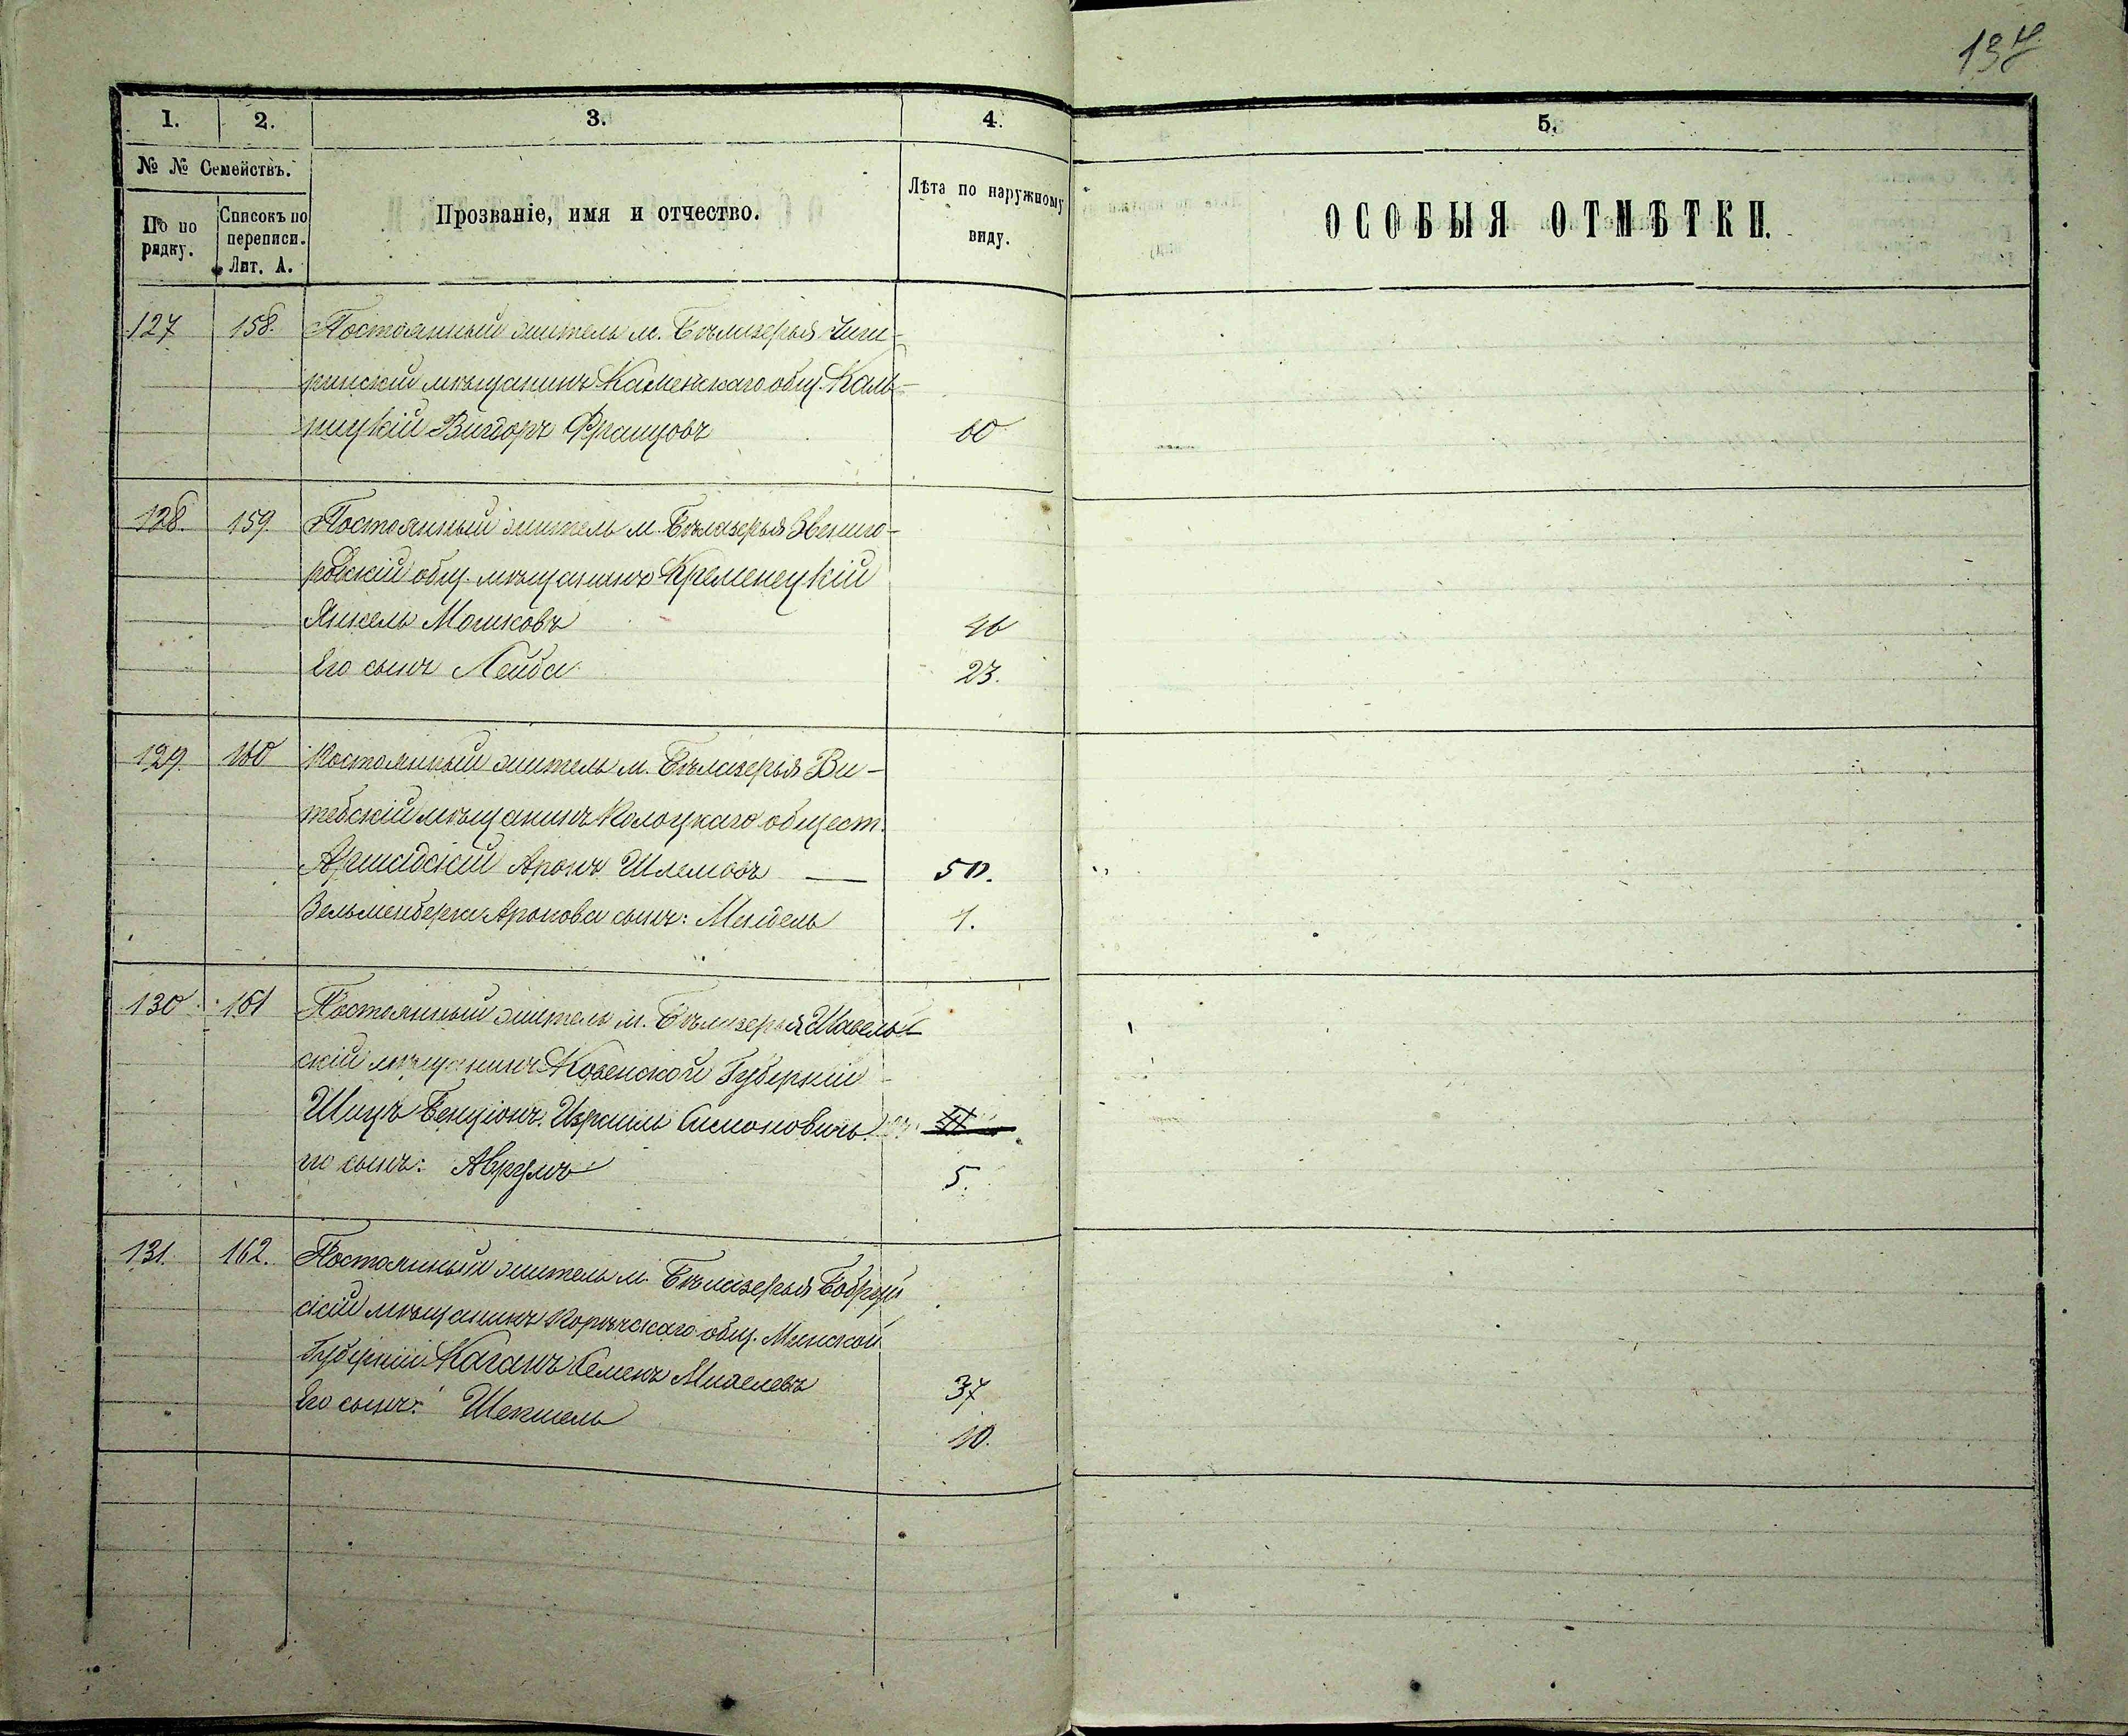 137
1.
2.
3.
4.
5.
№ № Семействъ.
По по рядку.
Списокъ по переписи. Лит. А.
Прозваніе, имя и отчество.
Лѣта по наружному виду.
ОСОБЫЯ ОТМѢТКИ.
127 158. Постоянный житель м. Бѣлазерья Чиги-
ринскій мѣщанинъ Каменскаго общ. Каль-
ницкій Вигдоръ Францовъ 60
128. 159. Постоянный житель м. Бѣлазерья Звениго-
родскій общ. мѣщанинъ Кременецкій
Янкель Мошковъ 46
Его сынъ Лейба 23.
129. 160 Постоянный житель м. Бѣлазерья Ви-
тебскій мѣщанинъ Полоцкаго общест.
Аронъ Шлемовъ — 50.
Ароновъ сынъ: Мендель 1.
130. 161 Постоянный житель м. Бѣлазерья Шавель-
скій мѣщанинъ Ковенской Губерніи
Шицъ Бенціонъ Израиль Симоновичъ
его сынъ: Аврумъ 5.
131. 162. Постоянный житель м. Бѣлазерья Бобруй
скій мѣщанинъ общ. Минской
Губерніи Каганъ Семенъ Михелевъ 37
Его сынъ: 10.